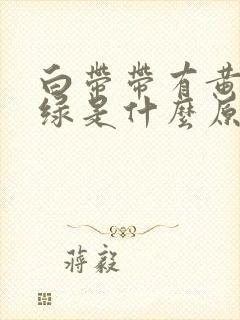 白带带有黄
绿是什麽原
蒋毅